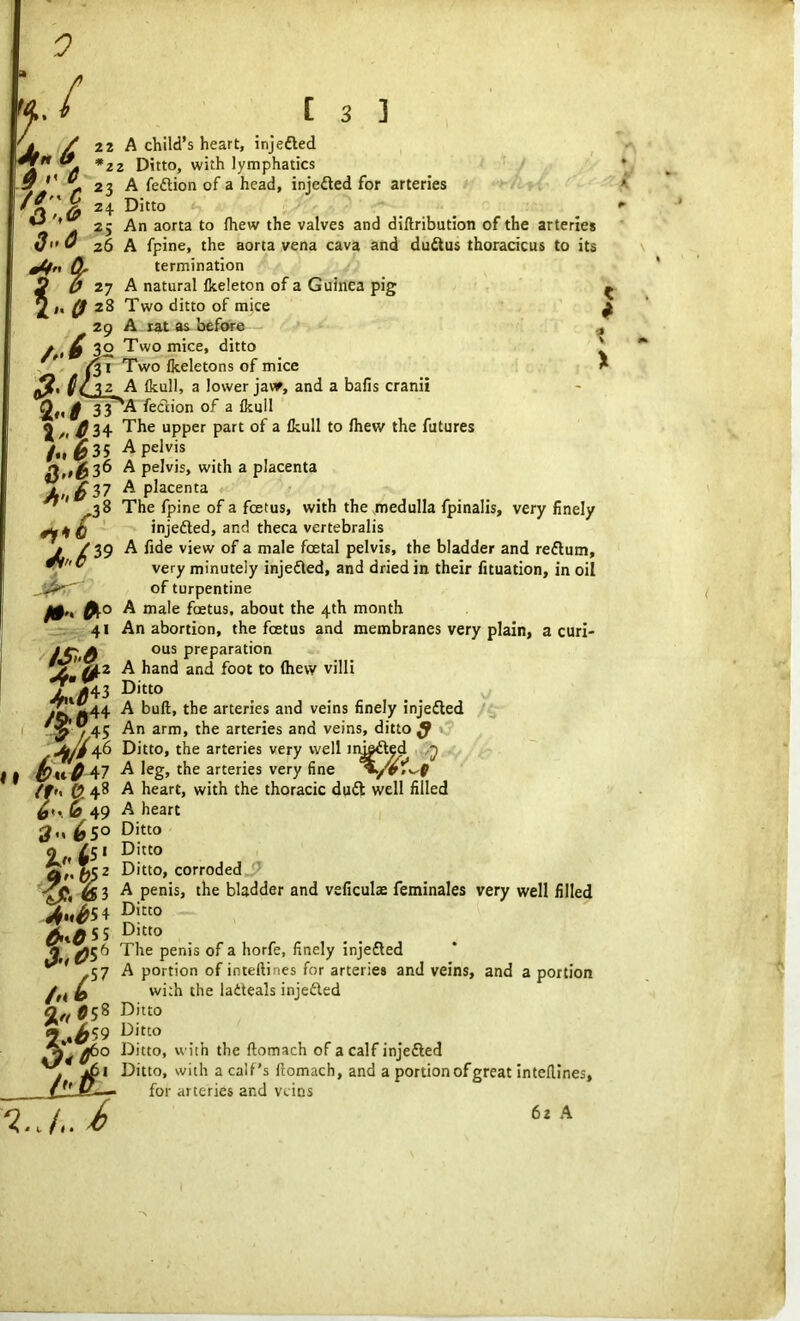 [ 3 ]
22 A child's heart, injected
*22 Ditto, with lymphatics
23 A ſection of a head, injected for arteries
24 Ditto
25 An aorta to ſhew the valves and diſtribution of the arteries
26 A ſpine, the aorta vena cava and ductus thoracicus to its
termination
27 A natural ſkeleton of a Guinea pig
28 Two ditto of mice
29 A rat as before
30 Two mice, ditto
31 Two ſkeletons of mice
32 A ſkull, a lower jaw, and a baſis cranii
33 A ſection of a ſkull
34 The upper part of a ſkull to ſhew the ſutures
35 A pelvis
36 A pelvis, with a placenta
37 A placenta
38 The ſpine of a fœtus, with the medulla ſpinalis, very finely
injected, and theca vertebralis
39 A ſide view of a male fœtal pelvis, the bladder and rectum,
very minutely injected, and dried in their ſituation, in oil
of turpentine
40 A male fœtus, about the 4th month
41 An abortion, the fœtus and membranes very plain, a curi-
ous preparation
42 A hand and foot to ſhew villi
43 Ditto
44 A buſt, the arteries and veins finely injected
45 An arm, the arteries and veins, ditto
46 Ditto, the arteries very well injected
47 A leg, the arteries very fine
48 A heart, with the thoracic duct well filled
49 A heart
50 Ditto
51 Ditto
52 Ditto, corroded
53 A penis, the bladder and veſiculæ ſeminales very well filled
54 Ditto
55 Ditto
56 The penis of a horſe, finely injected
57 A portion of inteſtines for arteries and veins, and a portion
with the lacteals injected
58 Ditto
59 Ditto
60 Ditto, with the ſtomach of a calf injected
61 Ditto, with a calf's ſtomach, and a portion of great inteſtines,
for arteries and veins
62 A